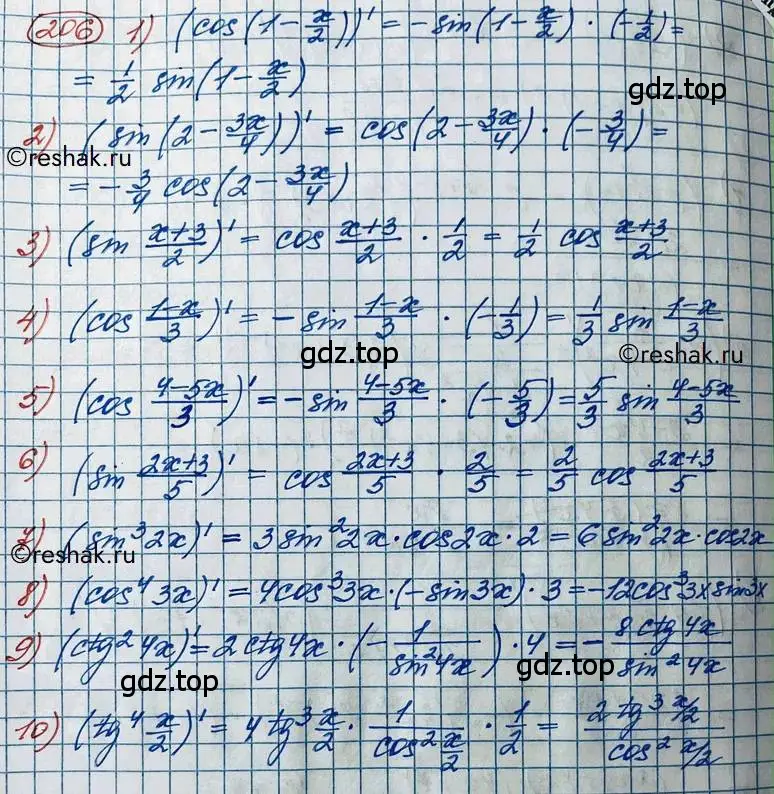 206 1) (cos(1 - x/2))' = -sin(1 - x/2) · (-1/2) =
= 1/2 sin(1 - x/2)
gdz.top
2) (sin(2 - 3x/4))' = cos(2 - 3x/4) · (-3/4) =
©reshak.ru
= -3/4 cos(2 - 3x/4)
3) (sin (x+3)/2)' = cos (x+3)/2 · 1/2 = 1/2 cos (x+3)/2
4) (cos (1-x)/3)' = -sin (1-x)/3 · (-1/3) = 1/3 sin (1-x)/3
gdz.top ©reshak.ru
5) (cos (4-5x)/3)' = -sin (4-5x)/3 · (-5/3) = 5/3 sin (4-5x)/3
6) (sin (2x+3)/5)' = cos (2x+3)/5 · 2/5 = 2/5 cos (2x+3)/5
7) (sin³2x)' = 3sin²2x·cos2x·2 = 6sin²2x·cos2x
©reshak.ru
8) (cos⁴3x)' = 4cos³3x·(-sin3x)·3 = -12cos³3x sin3x
9) (ctg²4x)' = 2ctg4x·(-1/sin²4x)·4 = -8ctg4x/sin²4x
gdz.top
10) (tg⁴ x/2)' = 4tg³ x/2 · 1/cos² x/2 · 1/2 = 2tg³ x/2 / cos² x/2
gdz.top